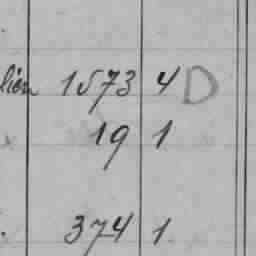 lien 1573 4 D
19 1
374 1